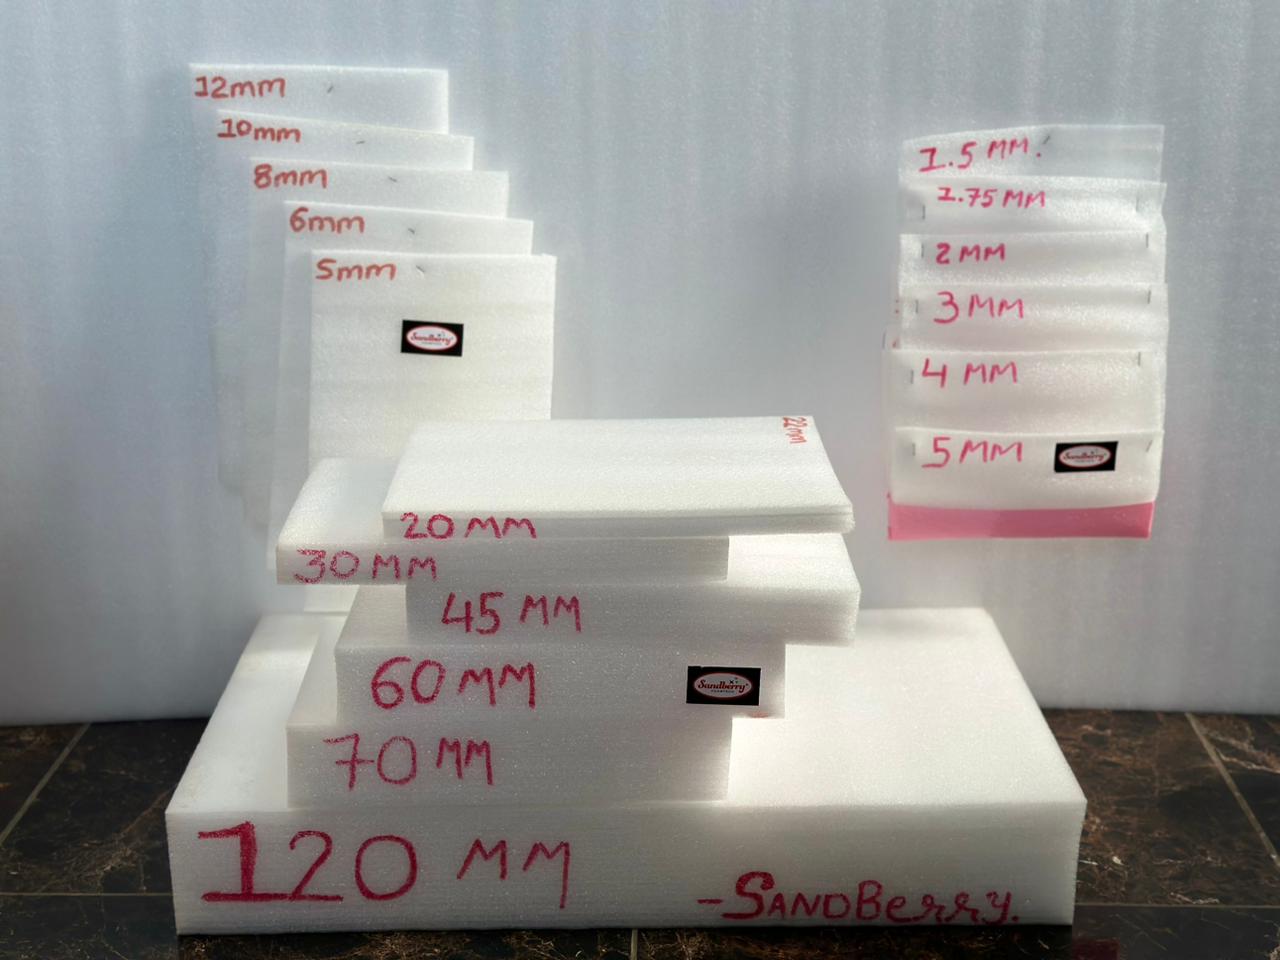 12mm
10mm
8mm
6mm
5mm
Sandberry
1.5 MM.
1.75 MM
2 MM
3 MM
4 MM
5 MM
Sandberry
22mm
20 MM
30 MM
45 MM
60 MM
Sandberry
70 MM
120 MM
-SANDBerry.